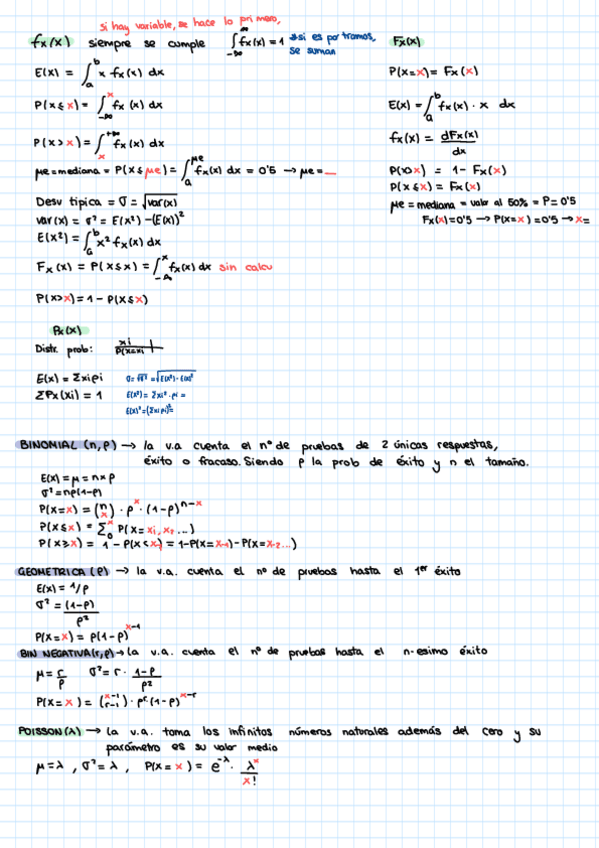 si hay variable, se hace lo primero,
fx(x) siempre se cumple ∫₋∞^∞ fx(x) = 1 *si es por tramos, se suman
E(x) = ∫ₐᵇ x fx(x) dx
P(x ≤ x) = ∫₋∞ˣ fx(x) dx
P(x > x) = ∫ₓ^+∞ fx(x) dx
μe = mediana = P(x ≤ μe) = ∫ₐ^μe fx(x) dx = 0'5 → μe = __
Desv típica = σ = √var(x)
var(x) = σ² = E(x²) - (E(x))²
E(x²) = ∫ₐᵇ x² fx(x) dx
Fx(x) = P(x ≤ x) = ∫₋∞ˣ fx(x) dx sin calcu
P(x > x) = 1 - P(x ≤ x)
Fx(x)
P(x = x) = Fx(x)
E(x) = ∫ₐᵇ fx(x) · x dx
fx(x) = dFx(x) / dx
P(x > x) = 1 - Fx(x)
P(x ≤ x) = Fx(x)
μe = mediana = valor al 50% = P = 0'5
Fx(x) = 0'5 → P(x = x) = 0'5 → x =
Px(x)
Distr. prob: xi
P(x = xi
E(x) = Σxipi σ = √σ² = √E(x²) - E(x)²
ΣPx(xi) = 1 E(x²) = Σxi² · pi =
E(x)² = (Σxipi)² =
BINOMIAL (n, p) → la v.a cuenta el nº de pruebas de 2 únicas respuestas,
éxito o fracaso. Siendo p la prob de éxito y n el tamaño.
E(x) = μ = n × p
σ² = np(1-p)
P(x = x) = (n x) · pˣ · (1-p)ⁿ⁻ˣ
P(x ≤ x) = Σ₀ˣ P(x = x₁, x₂ ...)
P(x ≥ x) = 1 - P(x < x) = 1 - P(x = x-1) - P(x = x-2 ...)
GEOMETRICA (p) → la v.a. cuenta el nº de pruebas hasta el 1er éxito
E(x) = 1/p
σ² = (1-p) / p²
P(x = x) = p(1-p)ˣ⁻¹
BIN NEGATIVA (r, p) → la v.a. cuenta el nº de pruebas hasta el n-esimo éxito
μ = r/p σ² = r · 1-p / p²
P(x = x) = (x-1 r-1) · pʳ · (1-p)ˣ⁻ʳ
POISSON (λ) → la v.a. toma los infinitos números naturales además del cero y su
parámetro es su valor medio
μ = λ , σ² = λ , P(x = x) = e⁻λ · λˣ / x!